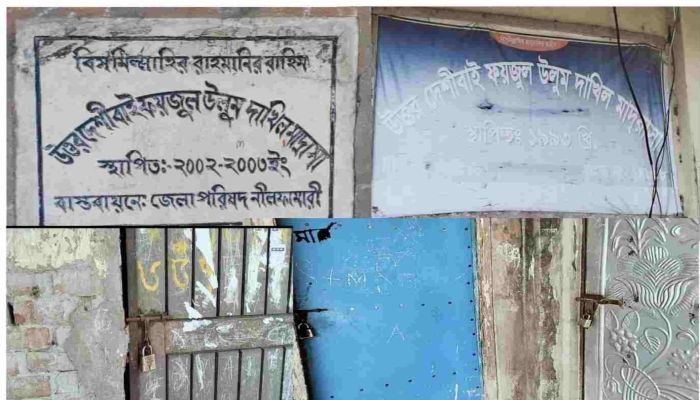 বিসমিল্লাহির রাহমানির রাহিম
উত্তর দেশীবাই ফয়জুল উলুম দাখিল মাদ্রাসা
স্থাপিত:-২০০২-২০০৩ইং
বাস্তবায়নে: জেলা পরিষদ নীলফামারী
উত্তর দেশীবাই ফয়জুল উলুম দাখিল মাদ্রাসা
স্থাপিতঃ ১৯৯৩ খ্রি.